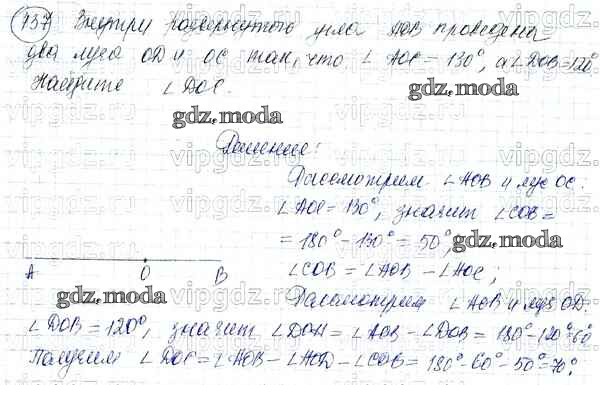 137 Внутри развернутого угла AOB проведена
два луча OD и OC так, что ∠ AOC = 130°, а ∠DOB = 120°
Найдите ∠DOC.
gdz.moda
gdz.moda
Решение:
Рассмотрим ∠AOB и луч OC:
∠AOC = 130°, значит ∠COB =
= 180° - 130° = 50°,
gdz.moda
A O B
∠COB = ∠AOB - ∠AOC;
gdz.moda
Рассмотрим ∠AOB и луч OD:
gdz.moda
∠DOB = 120°, значит ∠DOA = ∠AOB - ∠DOB = 180° - 120° = 60°
Получим ∠DOC = ∠AOB - ∠AOD - ∠COB = 180° - 60° - 50° = 70°.